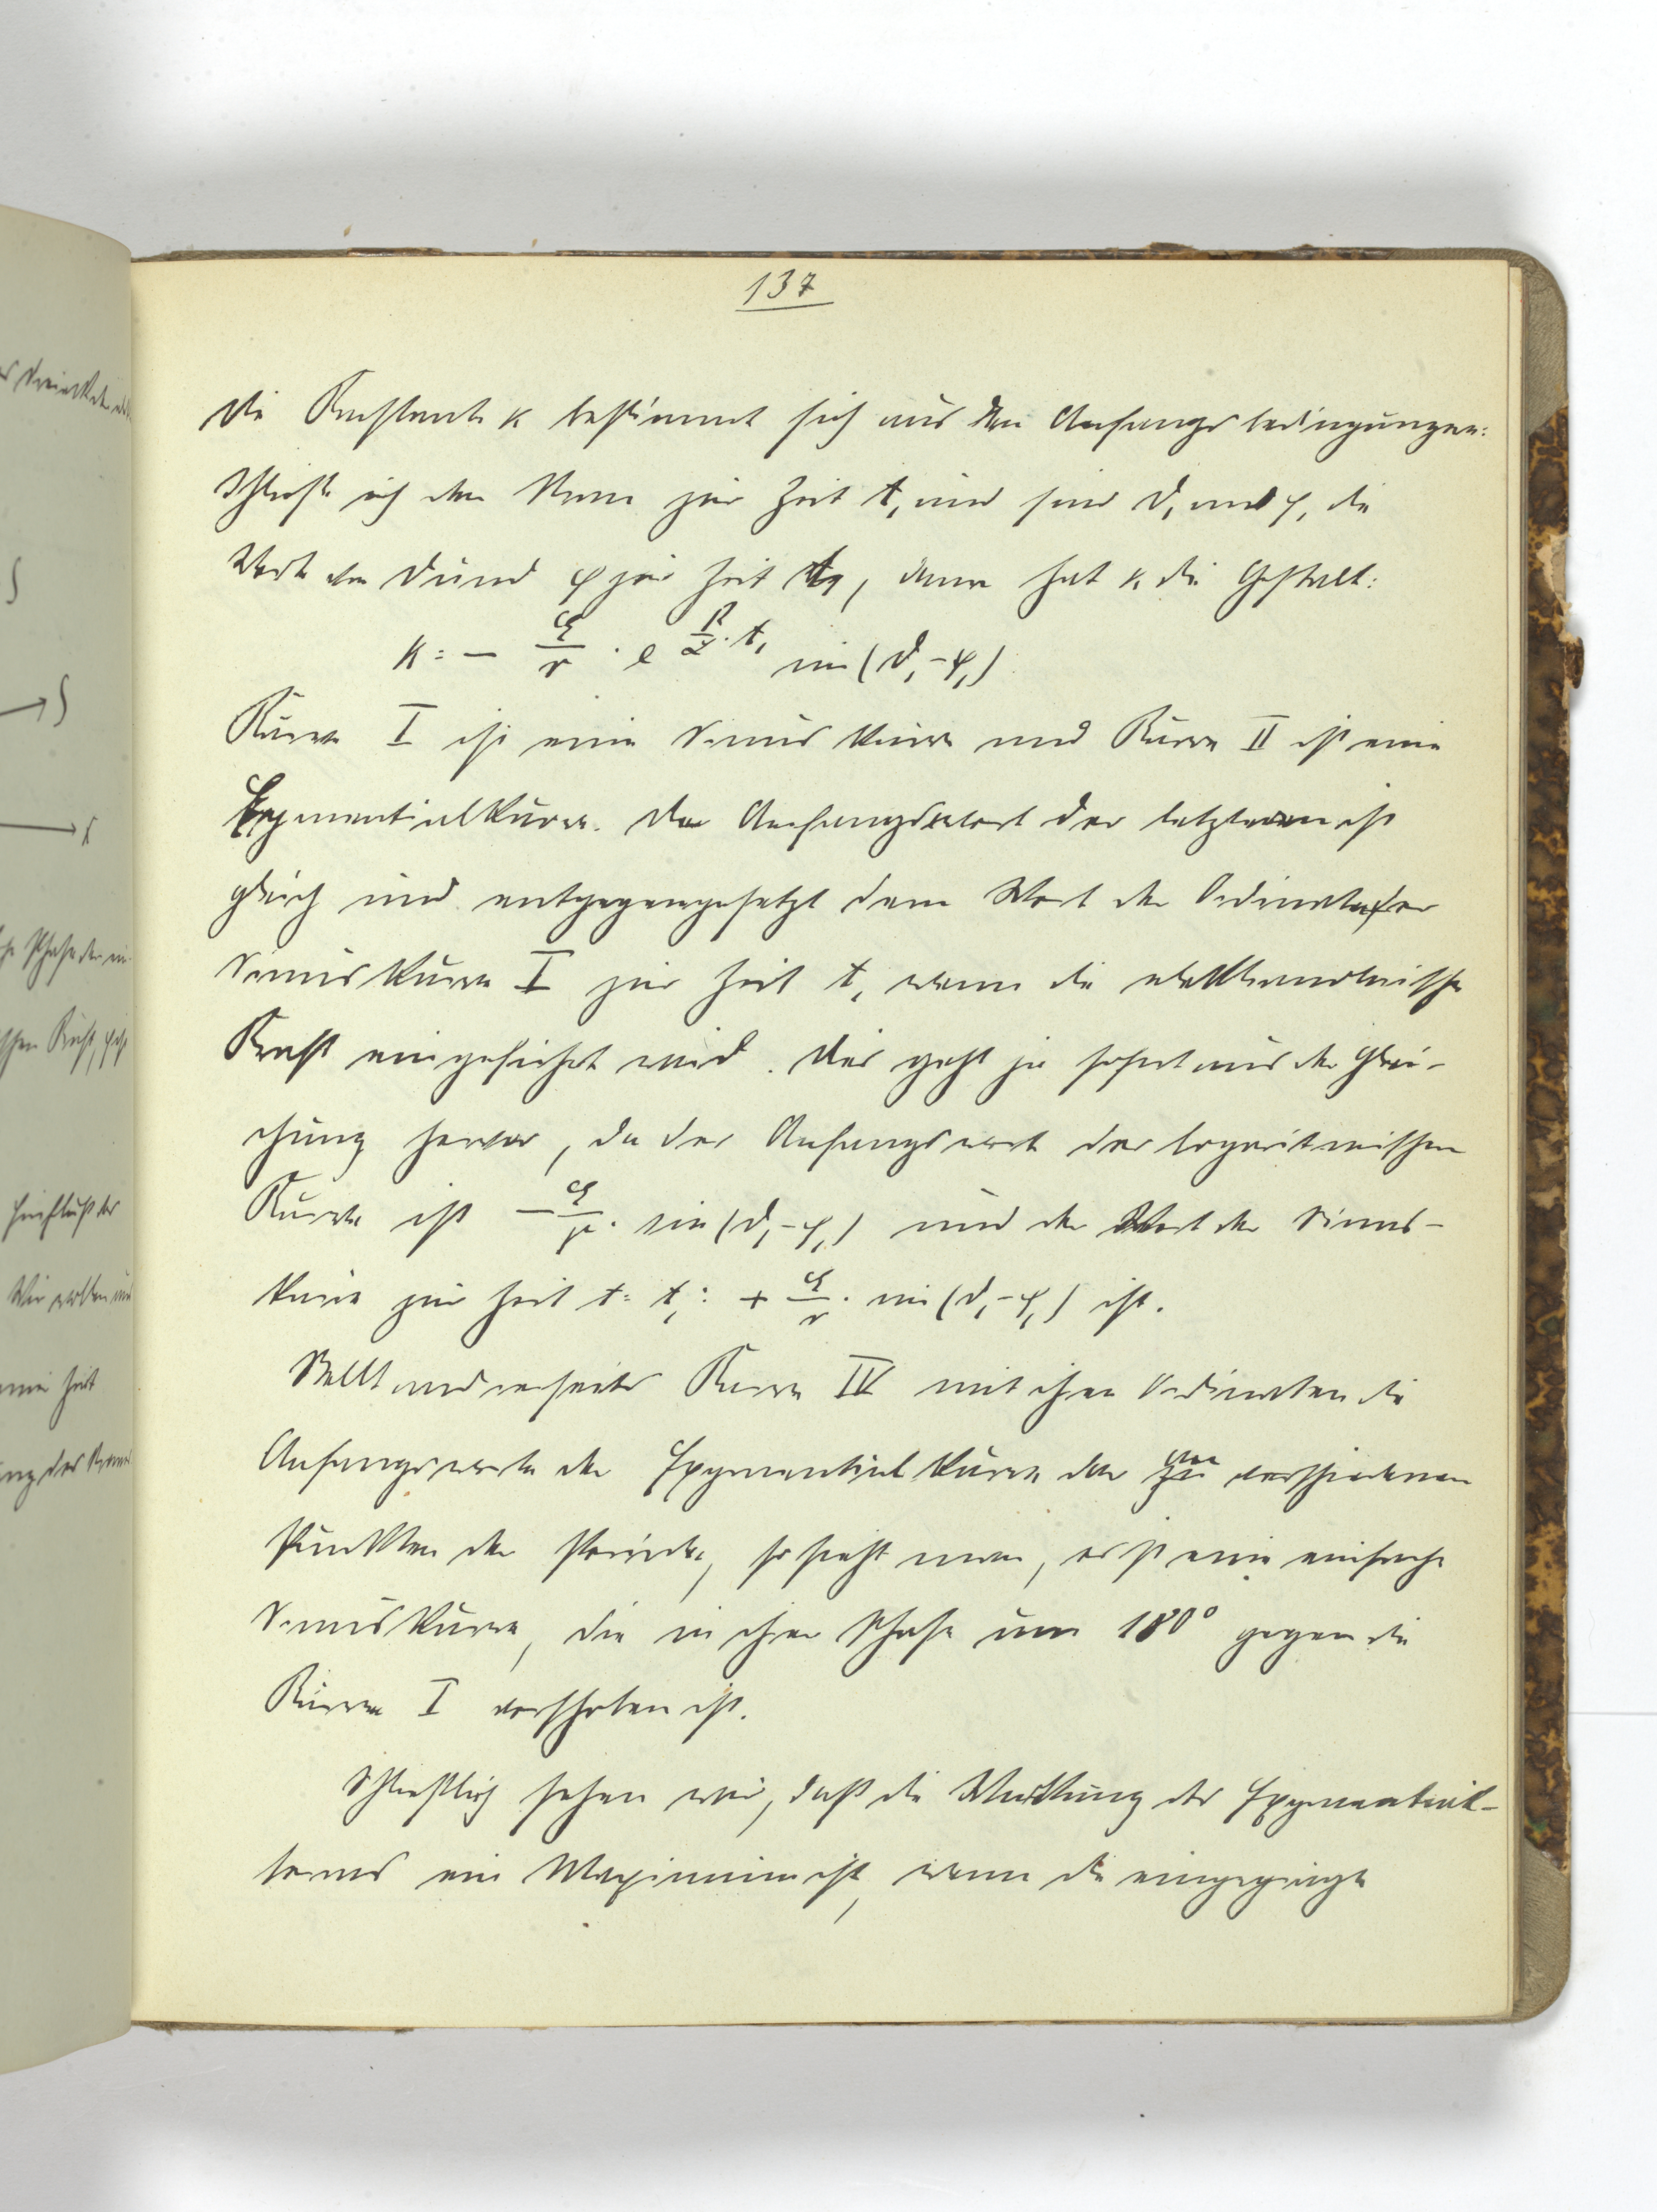 137
Die Konstante κ bestimmt sich aus den Anfangsbedingungen:
Schließe ich den Strom zur Zeit t₁ und sind ϑ₁ und φ₁ die
Werte von ϑ und φ zur Zeit t₁, dann hat κ die Gestalt:
κ = − ℰ/r · e^(R/L · t₁) sin (ϑ₁ − φ₁)
Kurve I ist eine Sinuskurve und Kurve II ist eine
Exponentialkurve. Der Anfangswert der letzteren ist
gleich und entgegengesetzt dem Wert der Ordinaten der
Sinuskurve I zur Zeit t₁ wenn die elektromotorische
Kraft eingeführt wird. Das geht ja sofort aus der Glei-
chung hervor, da der Anfangswert der logaritmischen
Kurve ist − ℰ/r · sin (ϑ₁ − φ₁) und der Wert der Sinus-
kurve zur Zeit t = t₁: + ℰ/r · sin (ϑ₁ − φ₁) ist.
Stellt andrerseits Kurve IV mit ihren Ordinaten die
Anfangswerte der Exponentialkurve der verschiedenen
Punkten der Periode, so sieht man, es ist eine einfache
Sinuskurve, die in ihrer Phase um 180° gegen die
Kurve I verschoben ist.
Schließlich sehen wir, daß die Wirkung des Exponential-
terms ein Maximum ist, wenn die eingeprägte
es Dreieck
S
→ S
→
Phase der
schen Kraft,
Einfluß der
Wir wollen
Zeit
ung des Stroms